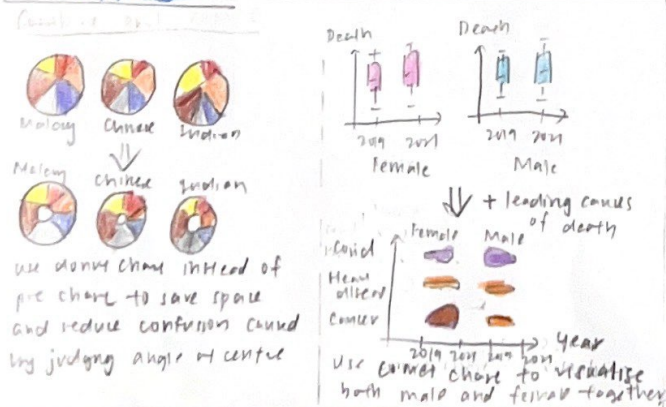 Malay Chinese Indian
Malay Chinese Indian
use donut chart instead of
pie chart to save space
and reduce confusion caused
by judging angle at centre
Death
2019 2021
Female
Death
2019 2021
Male
+ leading causes
of death
Female Male
Covid
Heart
disease
Cancer
2019 2021 2019 2021
Year
Use comet chart to visualise
both male and female together